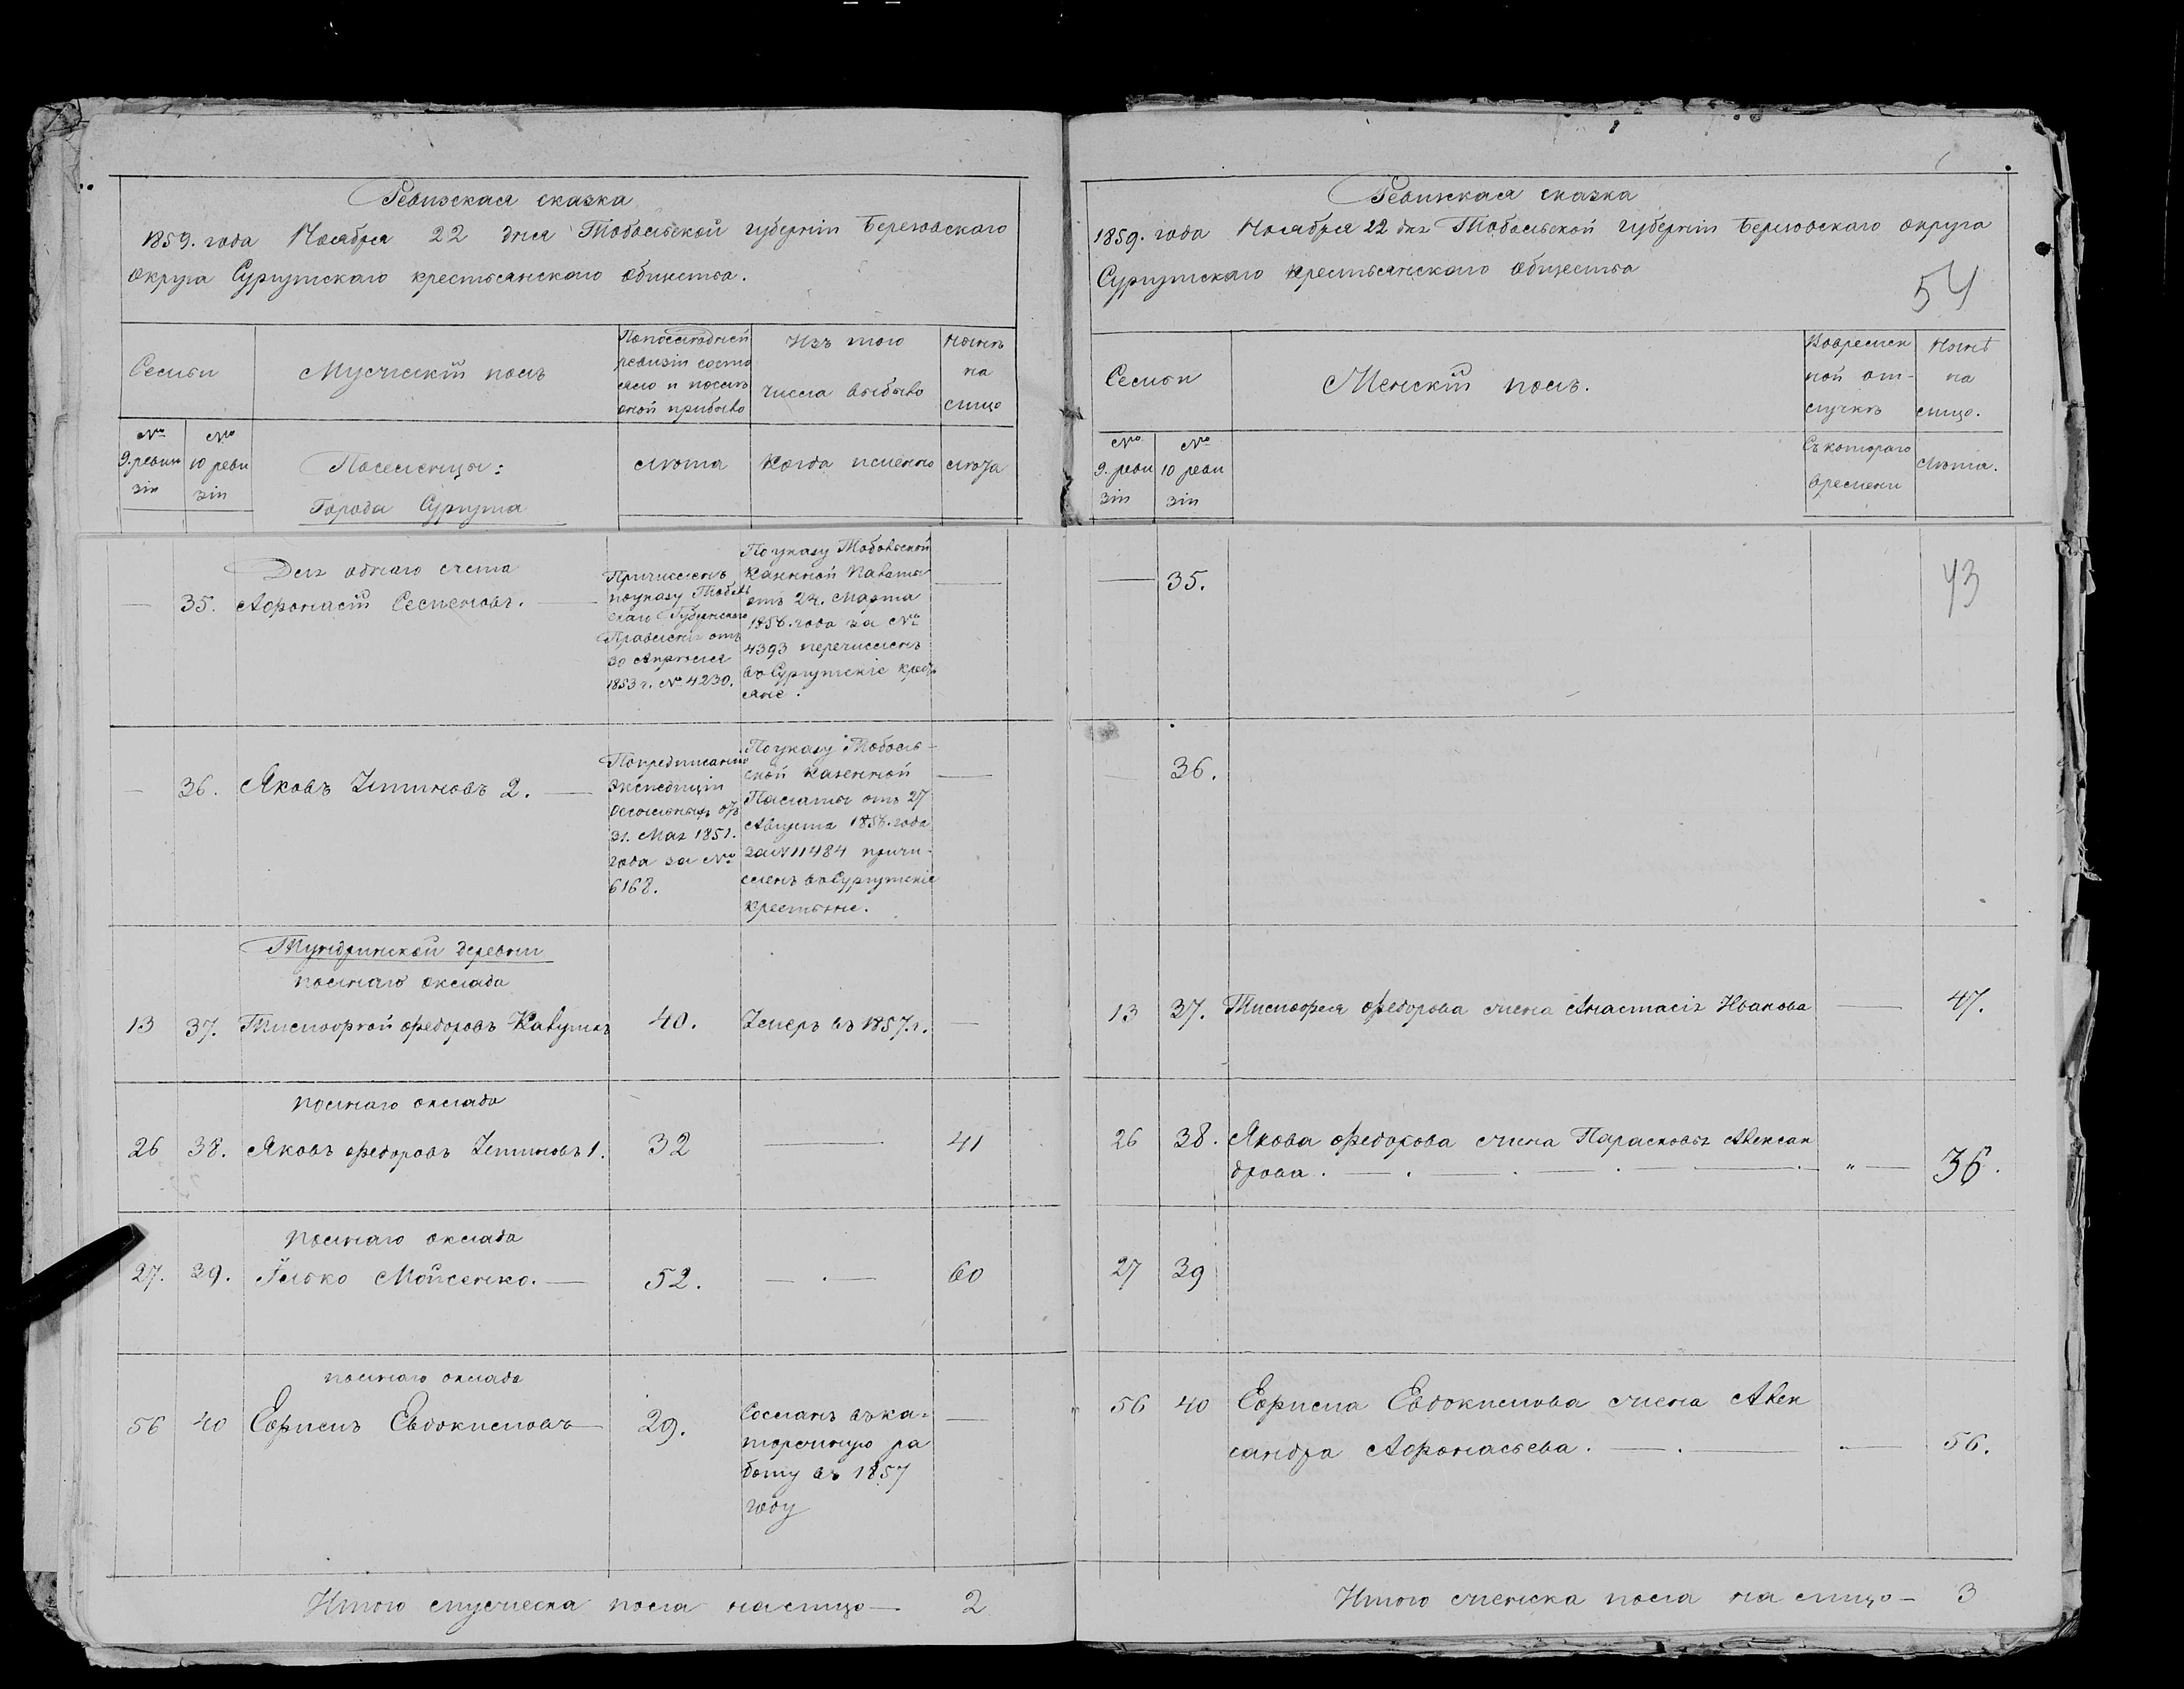 Ревизская сказка
1859. года Ноября 22 дня Тобольской губерніи Березовскаго
округа Сургутскаго крестьянскаго общества.
Семьи
Мужескій полъ
По последней
ревизіи состо
яло и после
оной прибыло
Изъ того
числа выбыло
Ныне
на
лицо
№
9. реви
зіи
№
10 реви
зіи
Поселенцы:
Города Сургута
лѣта
Когда именно
лѣта
Для однаго счета
35. Афонасій Семеновъ.
Причисленъ
по указу Тоболь
скаго Губернскаго
Правленія отъ
30 Апрѣля
1853 г. № 4230.
По указу Тобольской
Казенной Палаты
отъ 24. Марта
1856. года за №
4393 перечисленъ
въ Сургутскіе кресть
яне.
36. Яковъ 2.
По предписанію
Экспедиціи
о ссыльныхъ отъ
31. Мая 1851.
года за №
6168.
По указу Тоболь-
ской Казенной
Палаты отъ 27
Августа 1856. года
за № 11484 причи-
сленъ въ Сургутскіе
крестьяне.
Тундринской деревни
полнаго оклада
13 37. Тимофей Федоровъ 40. Умеръ въ 1857. г.
полнаго оклада
26 38. Яковъ Федоровъ 1. 32 41
полнаго оклада
27. 39. Илько Мойсенко. 52. 60
полнаго оклада
56 40 Ефимъ Евдокимовъ 29.
Сосланъ въ ка-
торжную ра
боту въ 1857
году
Итого мужеска пола на лицо 2
Ревизская сказка
1859. года Ноября 22 дня Тобольской губерніи Березовскаго округа
Сургутскаго крестьянскаго общества
54
Семьи
Женскій полъ.
Во времен
ной от-
лучкѣ
Нынѣ
на
лицо.
№
9. реви
зіи
№
10 реви
зіи
Съ котораго
времени
лѣта.
35.
43
36.
13 37. Тимофея Федорова жена Анастасія Иванова 47.
26 38. Якова Федорова жена Парасковья Алексан
дрова. 36.
27 39
56 40 Ефима Евдокимова жена Алек
сандра Афонасьева. 56.
Итого женска пола на лицо 3